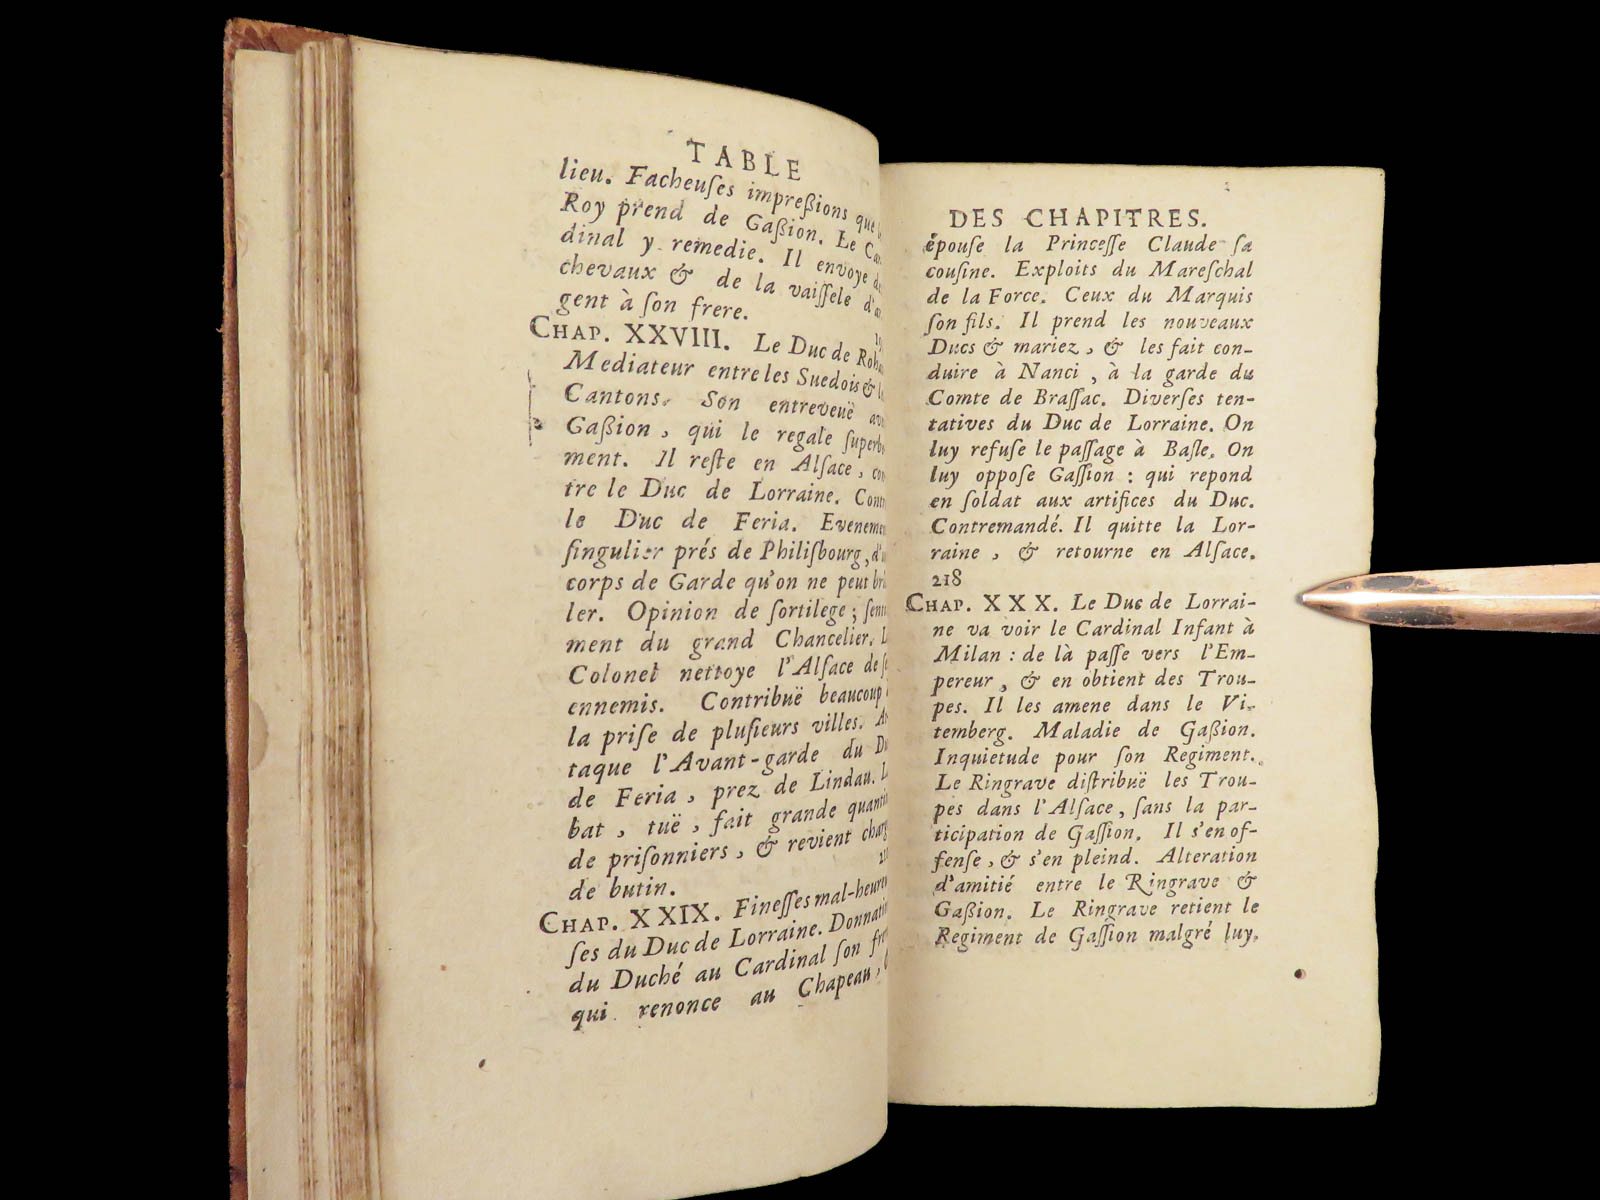 TABLE
lieu. Facheuſes impreßions que
Roy prend de Gaßion. Le Car
dinal y remedie. Il envoye de
chevaux & de la vaiſſele d'ar
gent à ſon frere.
CHAP. XXVIII. Le Duc de Roha
Mediateur entre les Suedois & l
Cantons. Son entreveuë ave
Gaßion, qui le regale ſuperbe
ment. Il reſte en Alſace, con
tre le Duc de Lorraine. Contr
le Duc de Feria. Evenemen
ſingulier prés de Philiſbourg, d'u
corps de Garde qu'on ne peut brû
ler. Opinion de ſortilege; ſenti
ment du grand Chancelier. L
Colonel nettoye l'Alſace de ſe
ennemis. Contribuë beaucoup
la priſe de pluſieurs villes. At
taque l'Avant-garde du Du
de Feria, prez de Lindau. L
bat, tuë, fait grande quanti
de priſonniers, & revient charg
de butin.
CHAP. XXIX. Fineſſes mal-heureu
ſes du Duc de Lorraine. Donnatio
du Duché au Cardinal ſon fre
qui renonce au Chapeau,
DES CHAPITRES.
épouſe la Princeſſe Claude ſa
couſine. Exploits du Mareſchal
de la Force. Ceux du Marquis
ſon fils. Il prend les nouveaux
Ducs & mariez, & les fait con-
duire à Nanci, à la garde du
Comte de Braſſac. Diverſes ten-
tatives du Duc de Lorraine. On
luy refuſe le paſſage à Baſle. On
luy oppoſe Gaſſion : qui repond
en ſoldat aux artifices du Duc.
Contremandé. Il quitte la Lor-
raine, & retourne en Alſace.
218
CHAP. XXX. Le Duc de Lorrai-
ne va voir le Cardinal Infant à
Milan : de là paſſe vers l'Em-
pereur, & en obtient des Trou-
pes. Il les amene dans le Vi-
temberg. Maladie de Gaßion.
Inquietude pour ſon Regiment.
Le Ringrave diſtribuë les Trou-
pes dans l'Alſace, ſans la par-
ticipation de Gaſſion. Il s'en of-
fenſe, & s'en pleind. Alteration
d'amitié entre le Ringrave &
Gaßion. Le Ringrave retient le
Regiment de Gaſſion malgré luy.